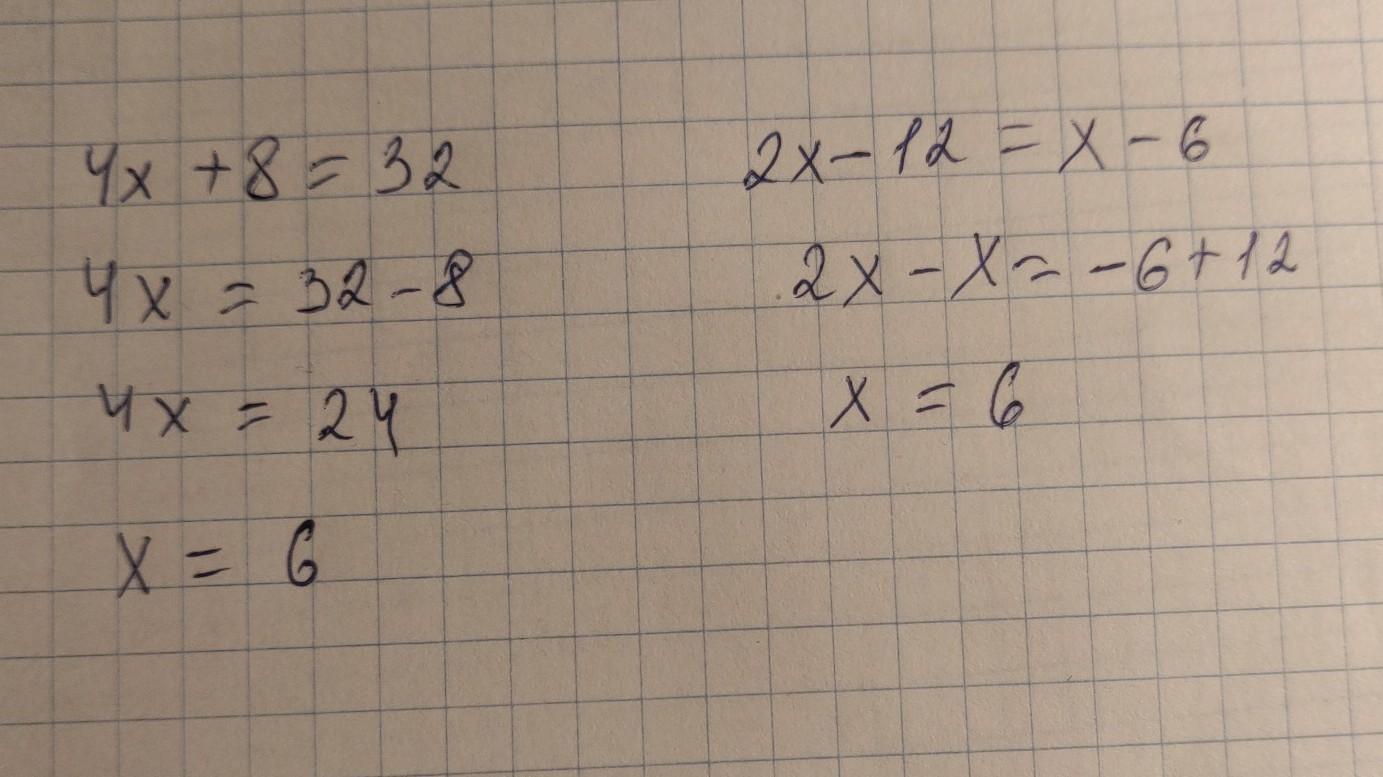 4x + 8 = 32
4x = 32 - 8
4x = 24
x = 6
2x - 12 = x - 6
2x - x = -6 + 12
x = 6